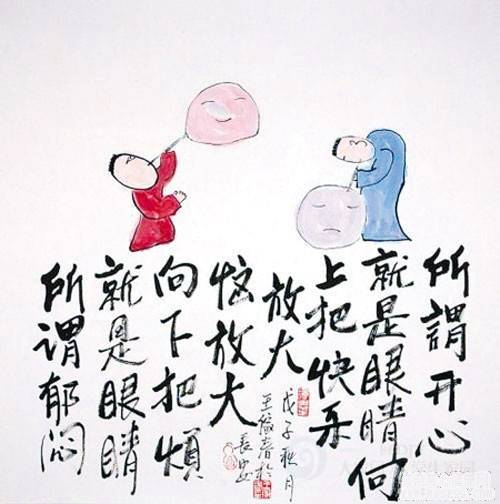 所謂开心
就是眼睛向
上把快乐
放大
所謂郁闷
就是眼睛
向下把煩
恼放大
戊子秋月
王 春於
長安